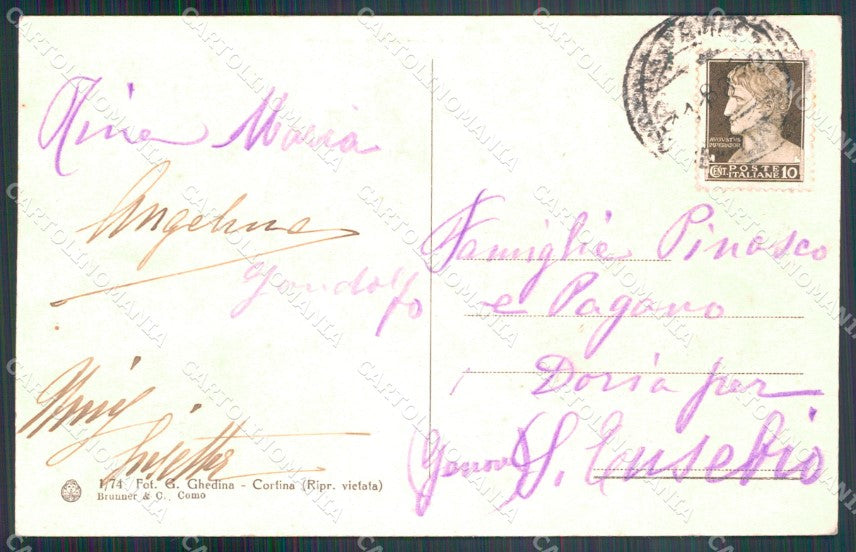 Rina Maria
Angelina
Gandolfo
1/74 Fot. G. Ghedina - Cortina (Ripr. vietata)
Brunner & C., Como
AUGUSTUS
IMPERATOR
POSTE
CENT. ITALIANE 10
Famiglie Pinasco
e Pagano
Doria per
(Genova) S. Eusebio
CARTOLINOMANIA